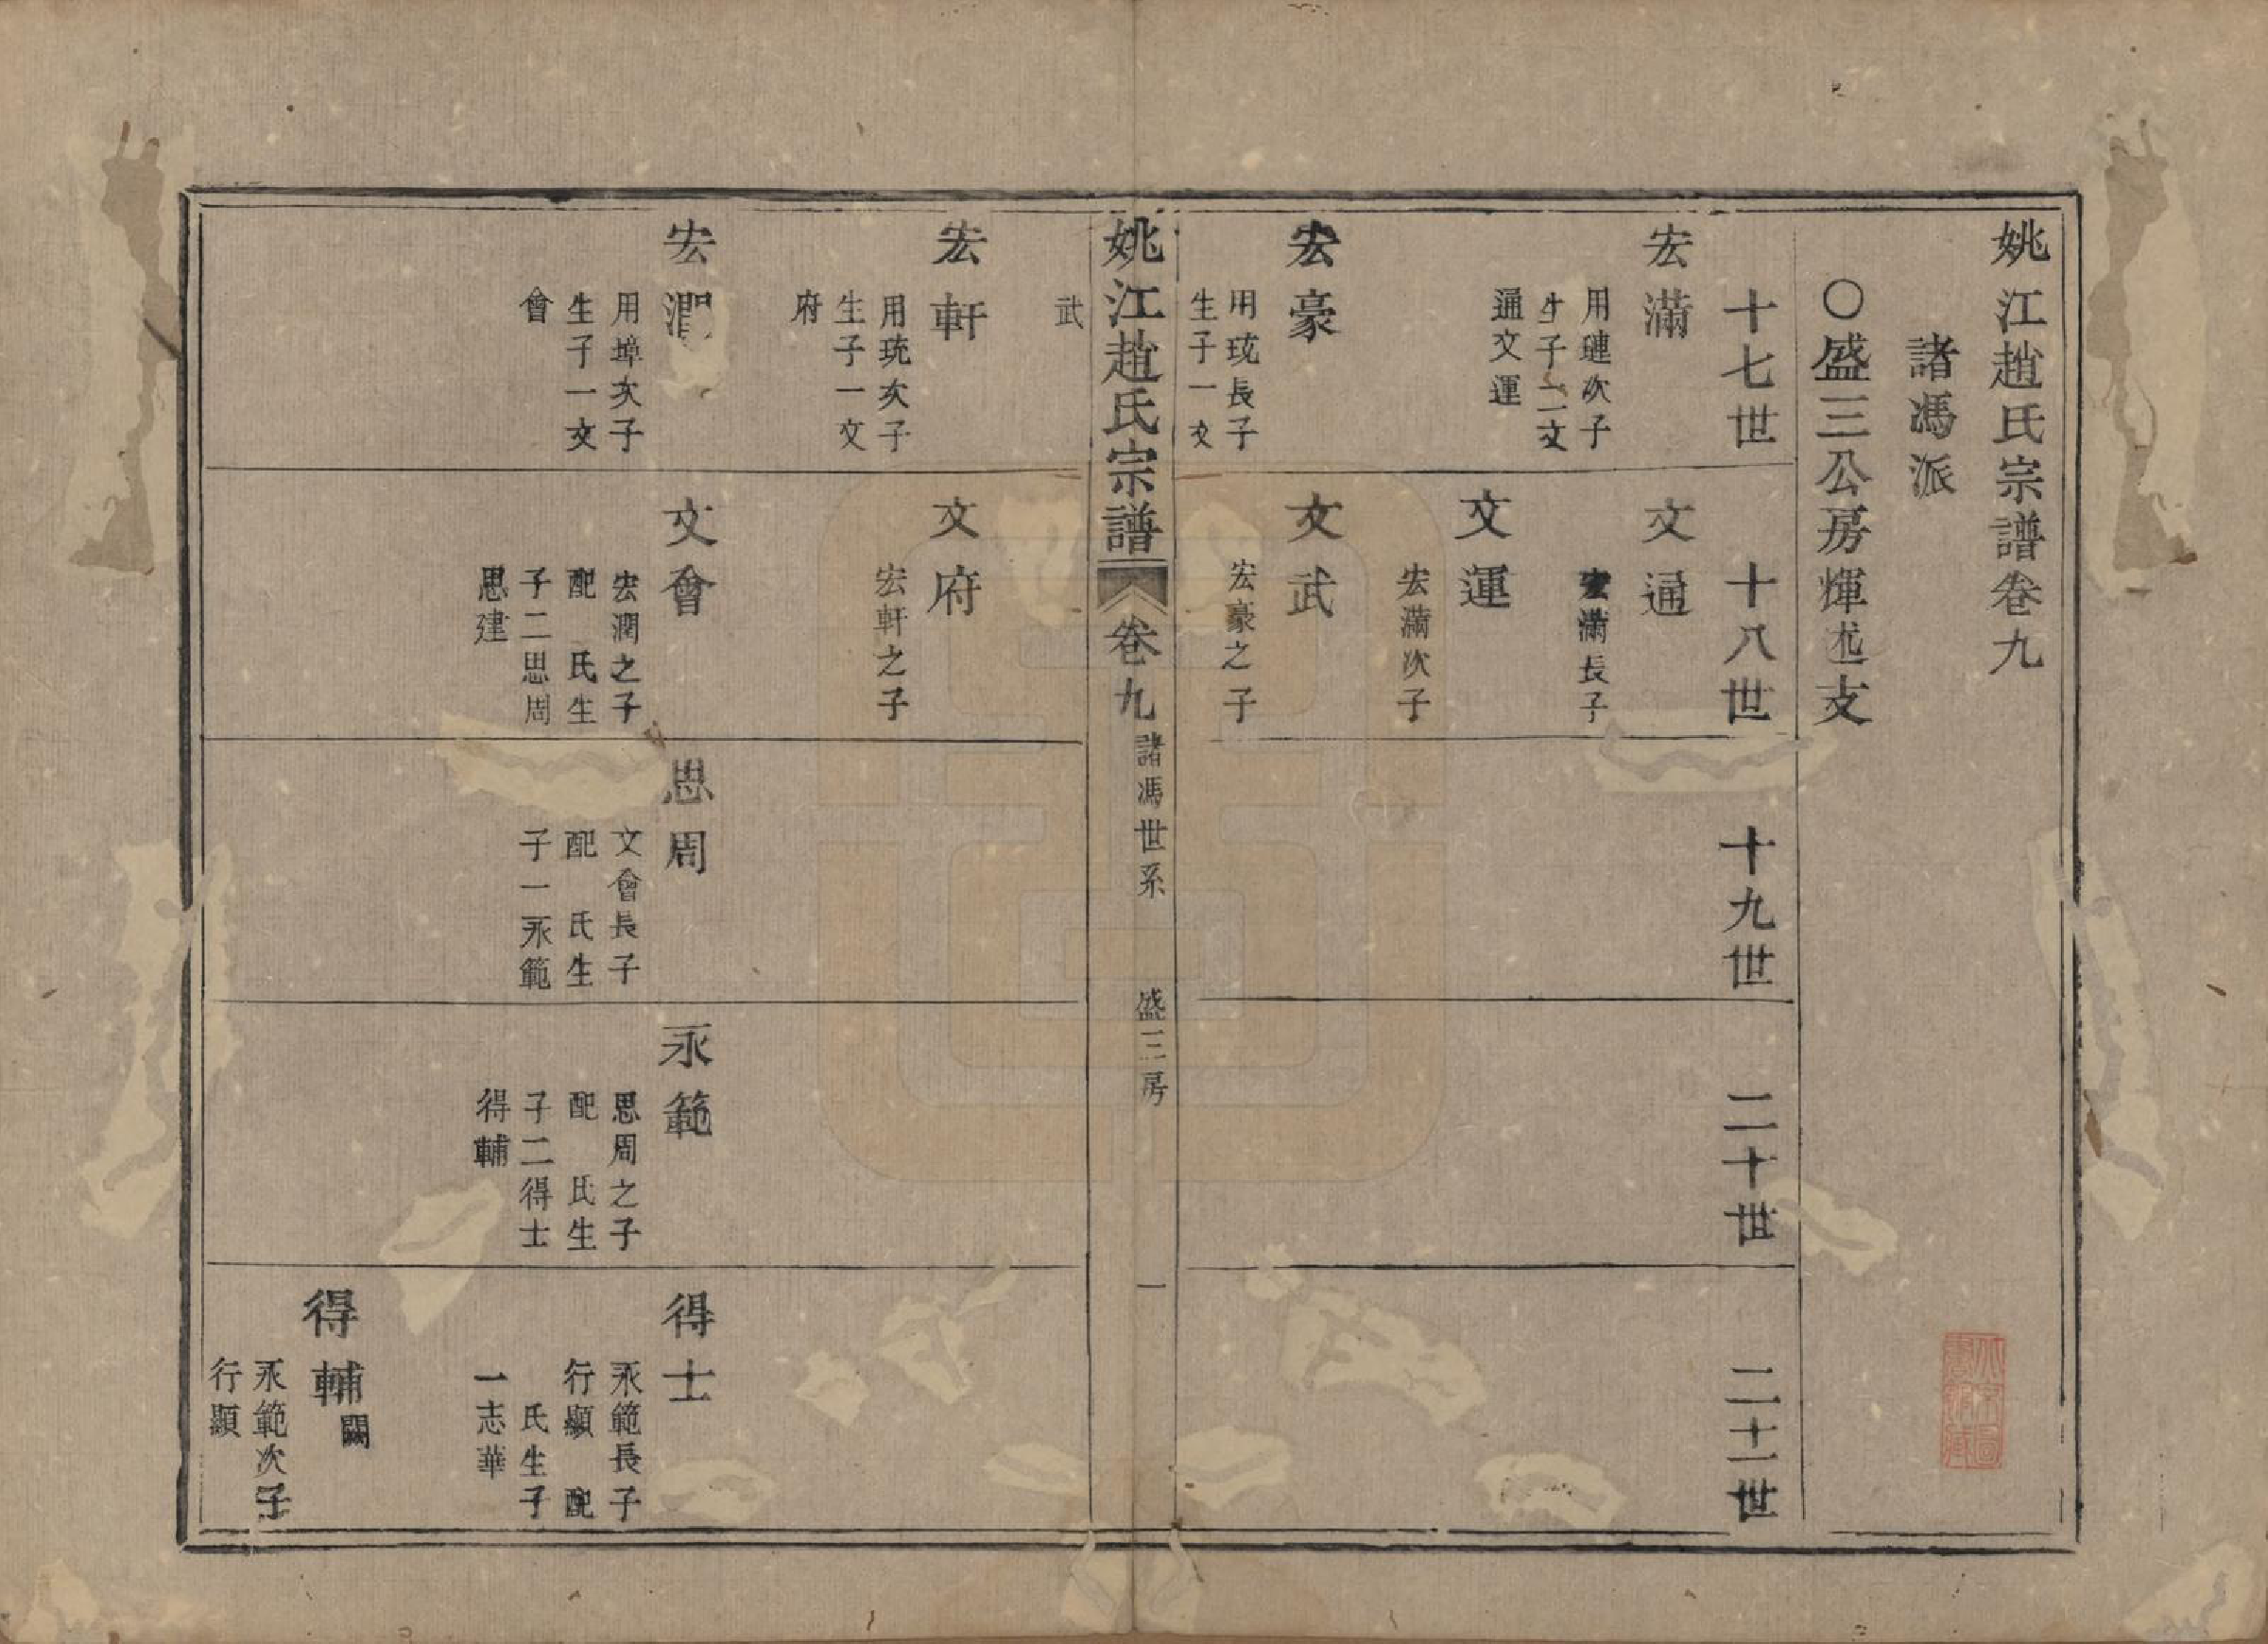 姚江趙氏宗譜卷九
諸馮派
○盛三公房煇支
十七世
十八世
十九世
二十世
二十一世
宏滿
用璉次子
生子二文
通文運
文通
宏滿長子
文運
宏滿次子
宏豪
用珬長子
生子一文
武
文武
宏豪之子
姚江趙氏宗譜
卷九
諸馮世系
盛三房
一
宏軒
用珫次子
生子一文
府
文府
宏軒之子
宏潤
用埠次子
生子一文
會
文會
宏潤之子
配 氏生
子二思周
思建
思周
文會長子
配 氏生
子一永範
永範
思周之子
配 氏生
子二得士
得輔
得士
永範長子
行顯 配
氏生子
一志華
得輔
闕
永範次子
行顯